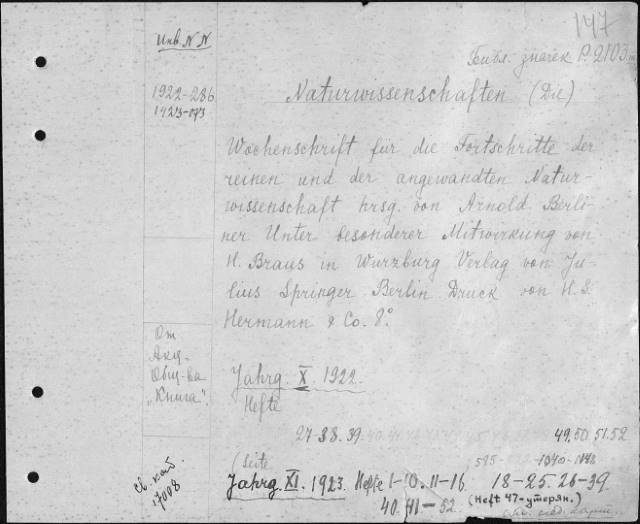 147
Инв. N N
Библ. значек P.2103
1922-286
1923-073
Naturwissenschaften (Die)
Wochenschrift für die Fortschritte der
reinen und der angewandten Natur-
wissenschaft hrsg. von Arnold Berli-
ner Unter besonderer Mitwirkung von
H. Braus in Wurzburg Verlag von Ju-
lius Springer Berlin Druck von H. S.
Hermann & Co. 8°.
От
Акц.
Общ-ва
"Книга".
Jahrg. X. 1922.
Hefte
27-38.39-40. 49.50.51.52
(Seite 1040-
Св. каб.
17008
Jahrg. XI. 1923. Hefte 1-10. 11-16 18-25. 26-39
40. 41-52. (Heft 47-утерян.)